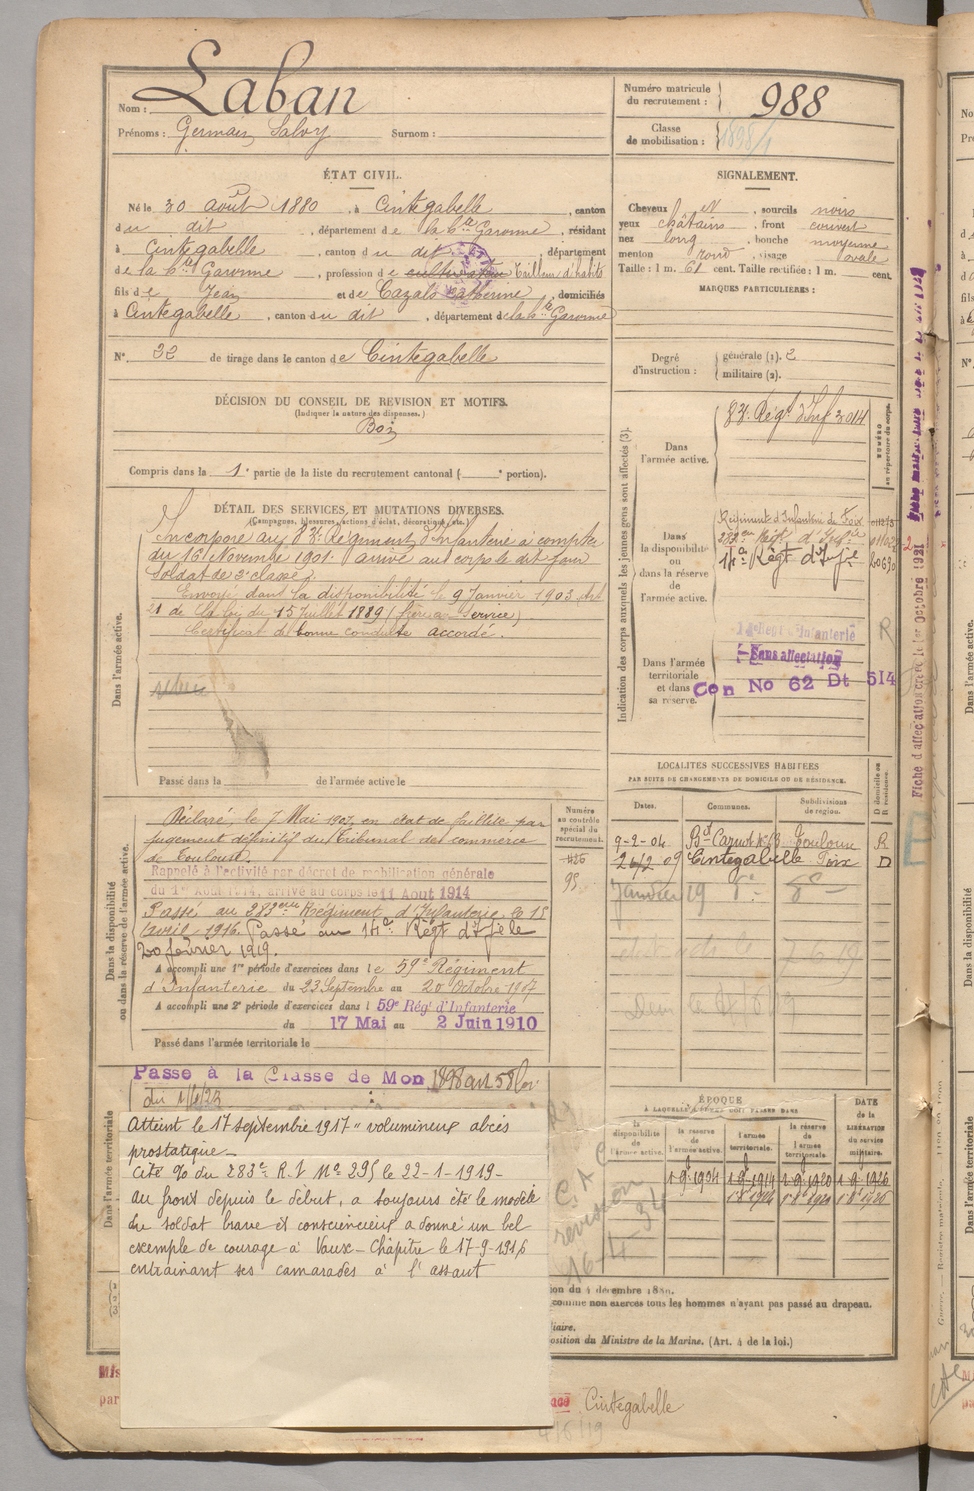 Nom : Laban
Prénoms : Germain Salvy Surnom :
Numéro matricule du recrutement : 988
Classe de mobilisation : 1898/1
ÉTAT CIVIL.
Né le 30 Août 1880, à Cintegabelle, canton
du dit, département de la hte Garonne, résidant
à Cintegabelle, canton du dit, département
de la hte Garonne, profession de cultivateur Tailleur d'habits
fils de Jean et de Cazals Catherine, domiciliés
à Cintegabelle, canton du dit, département de la hte Garonne
N° 32 de tirage dans le canton de Cintegabelle
SIGNALEMENT.
Cheveux et, sourcils noirs
yeux châtains, front couvert
nez long, bouche moyenne
menton rond, visage ovale
Taille : 1 m. 61 cent. Taille rectifiée : 1 m. cent.
MARQUES PARTICULIÈRES :
Degré d'instruction : générale (1). 2
militaire (2).
DÉCISION DU CONSEIL DE REVISION ET MOTIFS.
(Indiquer la nature des dispenses.)
Bon
Compris dans la 1e partie de la liste du recrutement cantonal ( e portion).
DÉTAIL DES SERVICES ET MUTATIONS DIVERSES.
(Campagnes, blessures, actions d'éclat, décorations, etc.)
Dans l'armée active.
Incorporé au 83e Régiment d'Infanterie à compter
du 16 Novembre 1901. arrivé au corps le dit jour
Soldat de 2e classe.
Envoyé dans la disponibilité le 9 Janvier 1903 Art
21 de la loi du 15 Juillet 1889 (frère au Service)
Certificat de bonne conduite accordé.
Passé dans la de l'armée active le
Indication des corps auxquels les jeunes gens sont affectés (3).
NUMÉRO au répertoire du corps.
Dans l'armée active.
83e Régt d'Inf 3014
Dans la disponibilité ou dans la réserve de l'armée active.
Régiment d'Infanterie de Foix
283eme Régt d'Inf
14e Régt d'Ifie 20690
Dans l'armée territoriale et dans sa réserve.
14e Regt Infanterie
Sans affectation
Con No 62 Dt 514
R
Fiche d'affectation créée le 1er Octobre 1921
LOCALITÉS SUCCESSIVES HABITÉES
PAR SUITE DE CHANGEMENTS DE DOMICILE OU DE RÉSIDENCE.
Dates. Communes. Subdivisions de région. D domicile ou R résidence.
9-2-04 Bd Carnot No 63 Toulouse R
24/2-09 Cintegabelle Foix D
Janvier 19
Dans la disponibilité ou dans la réserve de l'armée active.
Numéro au contrôle spécial du recrutement.
Déclaré, le 7 Mai 1907, en état de faillite par
jugement définitif du Tribunal de commerce
de Toulouse.
Rappelé à l'activité par décret de mobilisation générale
du 1er Août 1914, arrivé au corps le 11 Aout 1914
Passé au 283eme Régiment d'Infanterie le 15
avril 1916. Passé au 14e Régt d'Ifie le
20 février 1919.
A accompli une 1re période d'exercices dans le 59e Régiment
d'Infanterie du 23 Septembre au 20 Octobre 1907
A accompli une 2e période d'exercices dans l 59e Rég' d'Infanterie
du 17 Mai au 2 Juin 1910
Passé dans l'armée territoriale le
Dans l'armée territoriale
Passé à la Classe de Mon 1898 art 58 loi
du 1/4/23
Atteint le 17 septembre 1917 "volumineux abcès
prostatique
Cité % du 283e R.I No 295 le 22-1-1919-
au front depuis le début, a toujours été le modèle
du soldat brave et consciencieux a donné un bel
exemple de courage à Vaux-Chapitre le 17-9-1916
entrainant ses camarades à l'assaut
ÉPOQUE
À LAQUELLE L'HOMME DOIT PASSER DANS
la disponibilité de l'armée active. la réserve de l'armée active. l'armée territoriale. la réserve de l'armée territoriale. DATE de la LIBÉRATION du service militaire.
1-9-1904 1-9-1914 1-9-1920 1-9-1926
révision
16-4-34
ion du 4 décembre 1889.
comme non exercés tous les hommes n'ayant pas passé au drapeau.
liaire.
osition du Ministre de la Marine. (Art. 4 de la loi.)
Cintegabelle
4/6/19